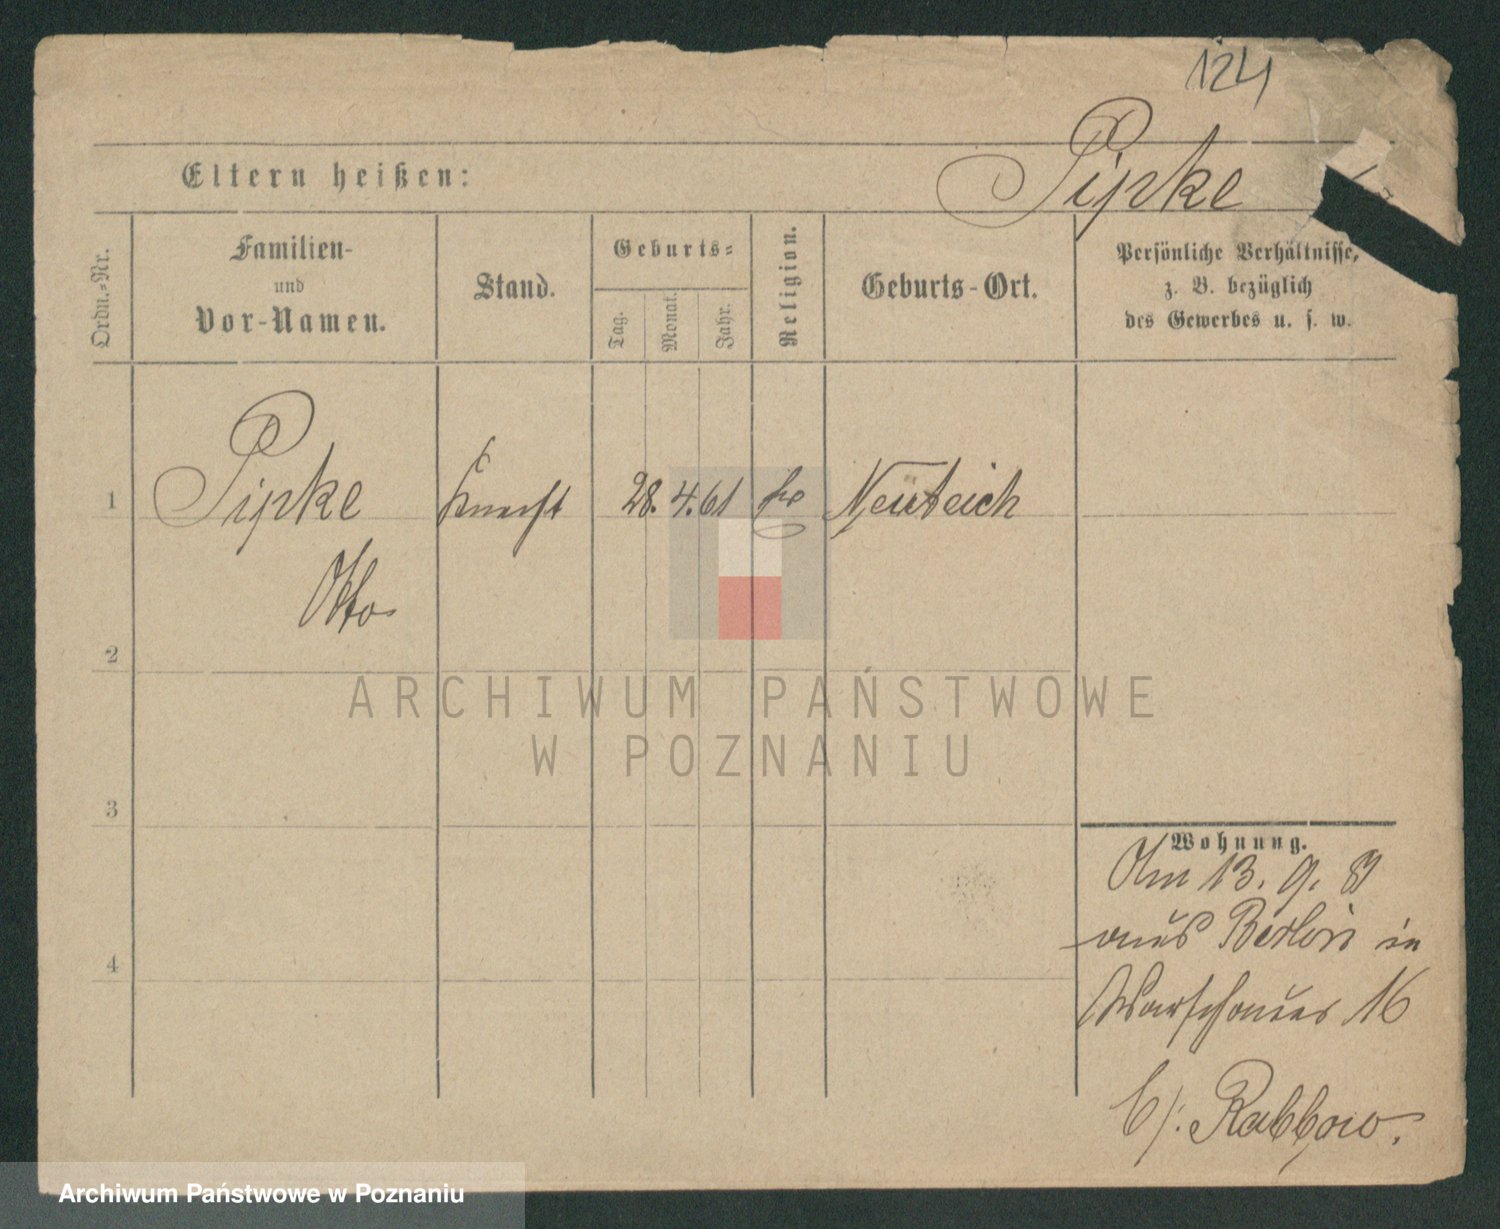 124
Eltern heißen:
Pipke
Ordn.-Nr.
Familien-
und
Vor-Namen.
Stand.
Geburts-
Tag.
Monat.
Jahr.
Religion.
Geburts-Ort.
Persönliche Verhältnisse,
z. B. bezüglich
des Gewerbes u. s. w.
1
Pipke
Otto
Knecht
28. 4. 61
Neuteich
2
ARCHIWUM PAŃSTWOWE
W POZNANIU
3
4
Wohnung.
Am 13. 9.
aus Berlin in
Warschauer 16
b/:
Archiwum Państwowe w Poznaniu